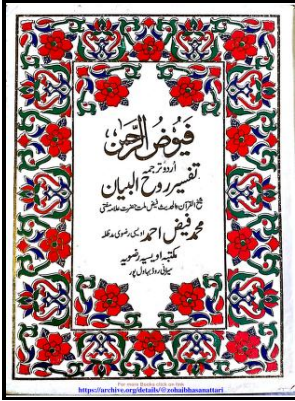 فیوض الرحمٰن
اُردو ترجمہ
تفسیر روح البیان
شیخ القرآن والحدیث فیض ملت حضرت علامہ مفتی
محمد فیض احمد اویسی رضوی مدظلہ
مکتبہ اویسیہ رضویہ
سیرانی روڈ بہاول پور
For more Books click on link
https://archive.org/details/@zohaibhasanattari